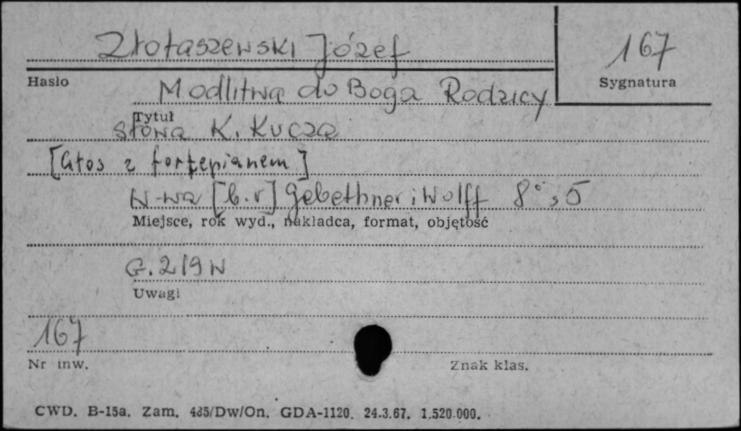 Złotaszewski Józef
167
Hasło
Sygnatura
Modlitwa do Boga Rodzicy
Tytuł
słowa K. Kucza
[Głos z fortepianem]
W-wa [b.r] Gebethner i Wolff 8°, 5
Miejsce, rok wyd., nakładca, format, objętość
G. 219 W
Uwagi
167
Nr inw.
Znak klas.
CWD. B-15a. Zam. 485/Dw/On. GDA-1120. 24.3.67. 1.520.000.